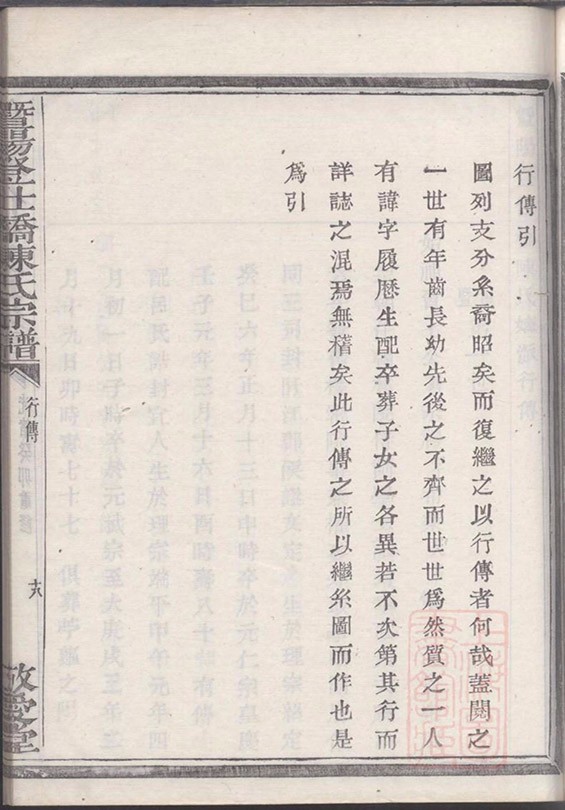 行傳引
圖列支分系裔昭矣而復繼之以行傳者何哉蓋閱之
一世有年齒長幼先後之不齊而世世爲然質之一人
有諱字履歷生配卒葬子女之各異若不次第其行而
詳誌之混焉無稽矣此行傳之所以繼系圖而作也是
爲引
暨陽登仕橋陳氏宗譜
行傳
敬愛堂